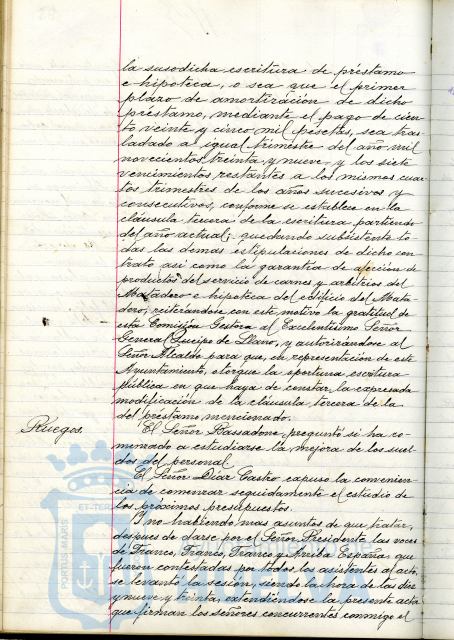 la susodicha escritura de préstamo
e hipoteca, o sea que el primer
plazo de amortización de dicho
préstamo, mediante el pago de cien-
to veinte y cinco mil pesetas, sea tras-
ladado a igual trimestre del año mil
novecientos treinta y nueve, y los siete
vencimientos restantes a los mismos cuar-
tos trimestres de los años sucesivos y
consecutivos, conforme se establece en la
cláusula tercera de la escritura partiendo
del año actual; quedando subsistente to-
das las demas estipulaciones de dicho con-
trato asi como la garantia de afección de
productos del servicio de carnes y arbitrios del
Matadero e hipoteca del edificio del Mata-
dero, reiterándose con este motivo la gratitud de
esta Comisión Gestora al Excelentísimo Señor
General Queipo de Llano, y autorizándose al
Señor Alcalde para que, en representación de este
Ayuntamiento, otorgue la oportuna escritura
pública en que haya de constar la expresada
modificación de la cláusula tercera de la
del préstamo mencionado.
Ruegos.
El Señor Massadone, preguntó si ha co-
menzado a estudiarse la mejora de los suel-
dos del personal.
El Señor Díaz Castro expuso la convenien-
cia de comenzar seguidamente el estudio de
los próximos presupuestos.
Y no habiendo mas asuntos de que tratar,
despues de darse por el Señor Presidente las voces
de Franco, Franco, Franco y Arriba España, que
fueron contestadas por todos los asistentes al acto,
se levantó la sesión, siendo la hora de las diez
y nueve y treinta, extendiéndose la presente acta
que firman los señores concurrentes conmigo el
PORTUS MARIS
ET TER